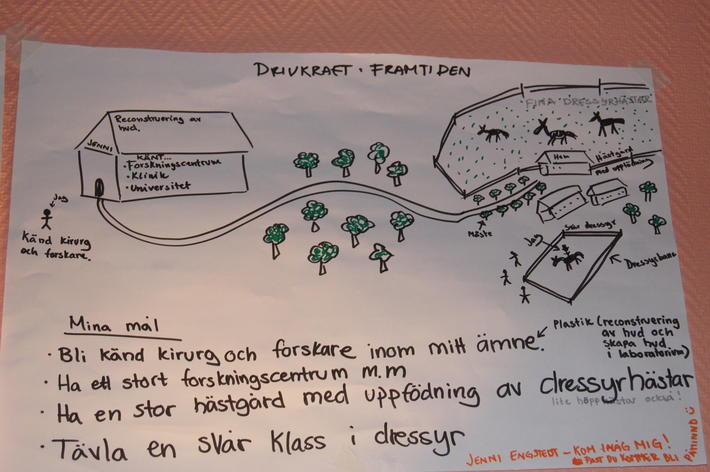 DRIVKRAFT · FRAMTIDEN
FINA DRESSYRHÄSTAR
Reconstruering av
hud.
JENNI
KÄNT...
· Forskningscentrum
· Klinik
· Universitet
Hem
Hästgård
med uppfödning
Jag
Känd kirurg
och forskare.
Måste
Svår dressyr
Jag
Dressyrbana
Mina mål
· Bli känd kirurg och forskare inom mitt ämne.
Plastik (reconstruering
av hud och
skapa hud
i laboratorium)
· Ha ett stort forskningscentrum m.m
· Ha en stor hästgård med uppfödning av dressyrhästar
lite hopphästar också!
· Tävla en svår klass i dressyr
JENNI ENGSTEDT - KOM IHÅG MIG!
FAST DU KOMMER BLI
PÅMINND